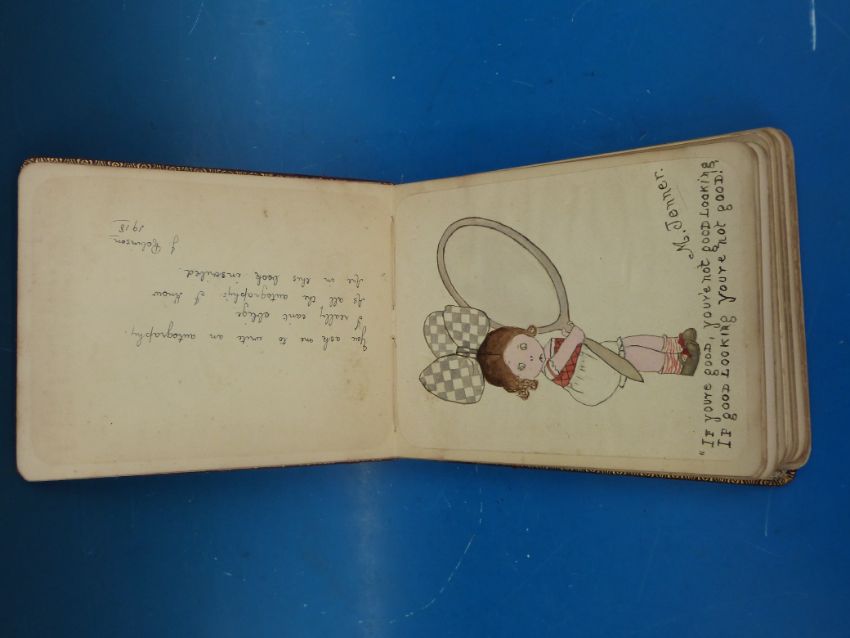 You ask me to write an autography.
I really can't oblige
As all the autography's I know
Are in this book inscribed.
J. Robinson.
1918
M. Jenner.
"If you're good, you're not good looking,
If good looking you're not good!"